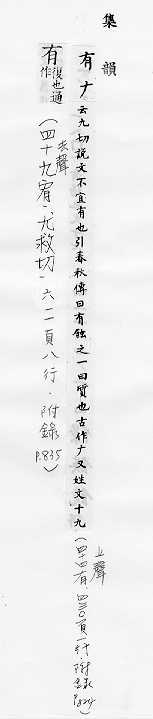 集韻
有𠂇云九切說文不宜有也引春秋傳曰有蝕之一曰質也古作𠂇又姓文十九(四十四有．四三〇頁一行．附錄P.824)
上聲
有復也通作
(四十九宥．尤救切．六一一頁八行．附錄P.835)
去聲